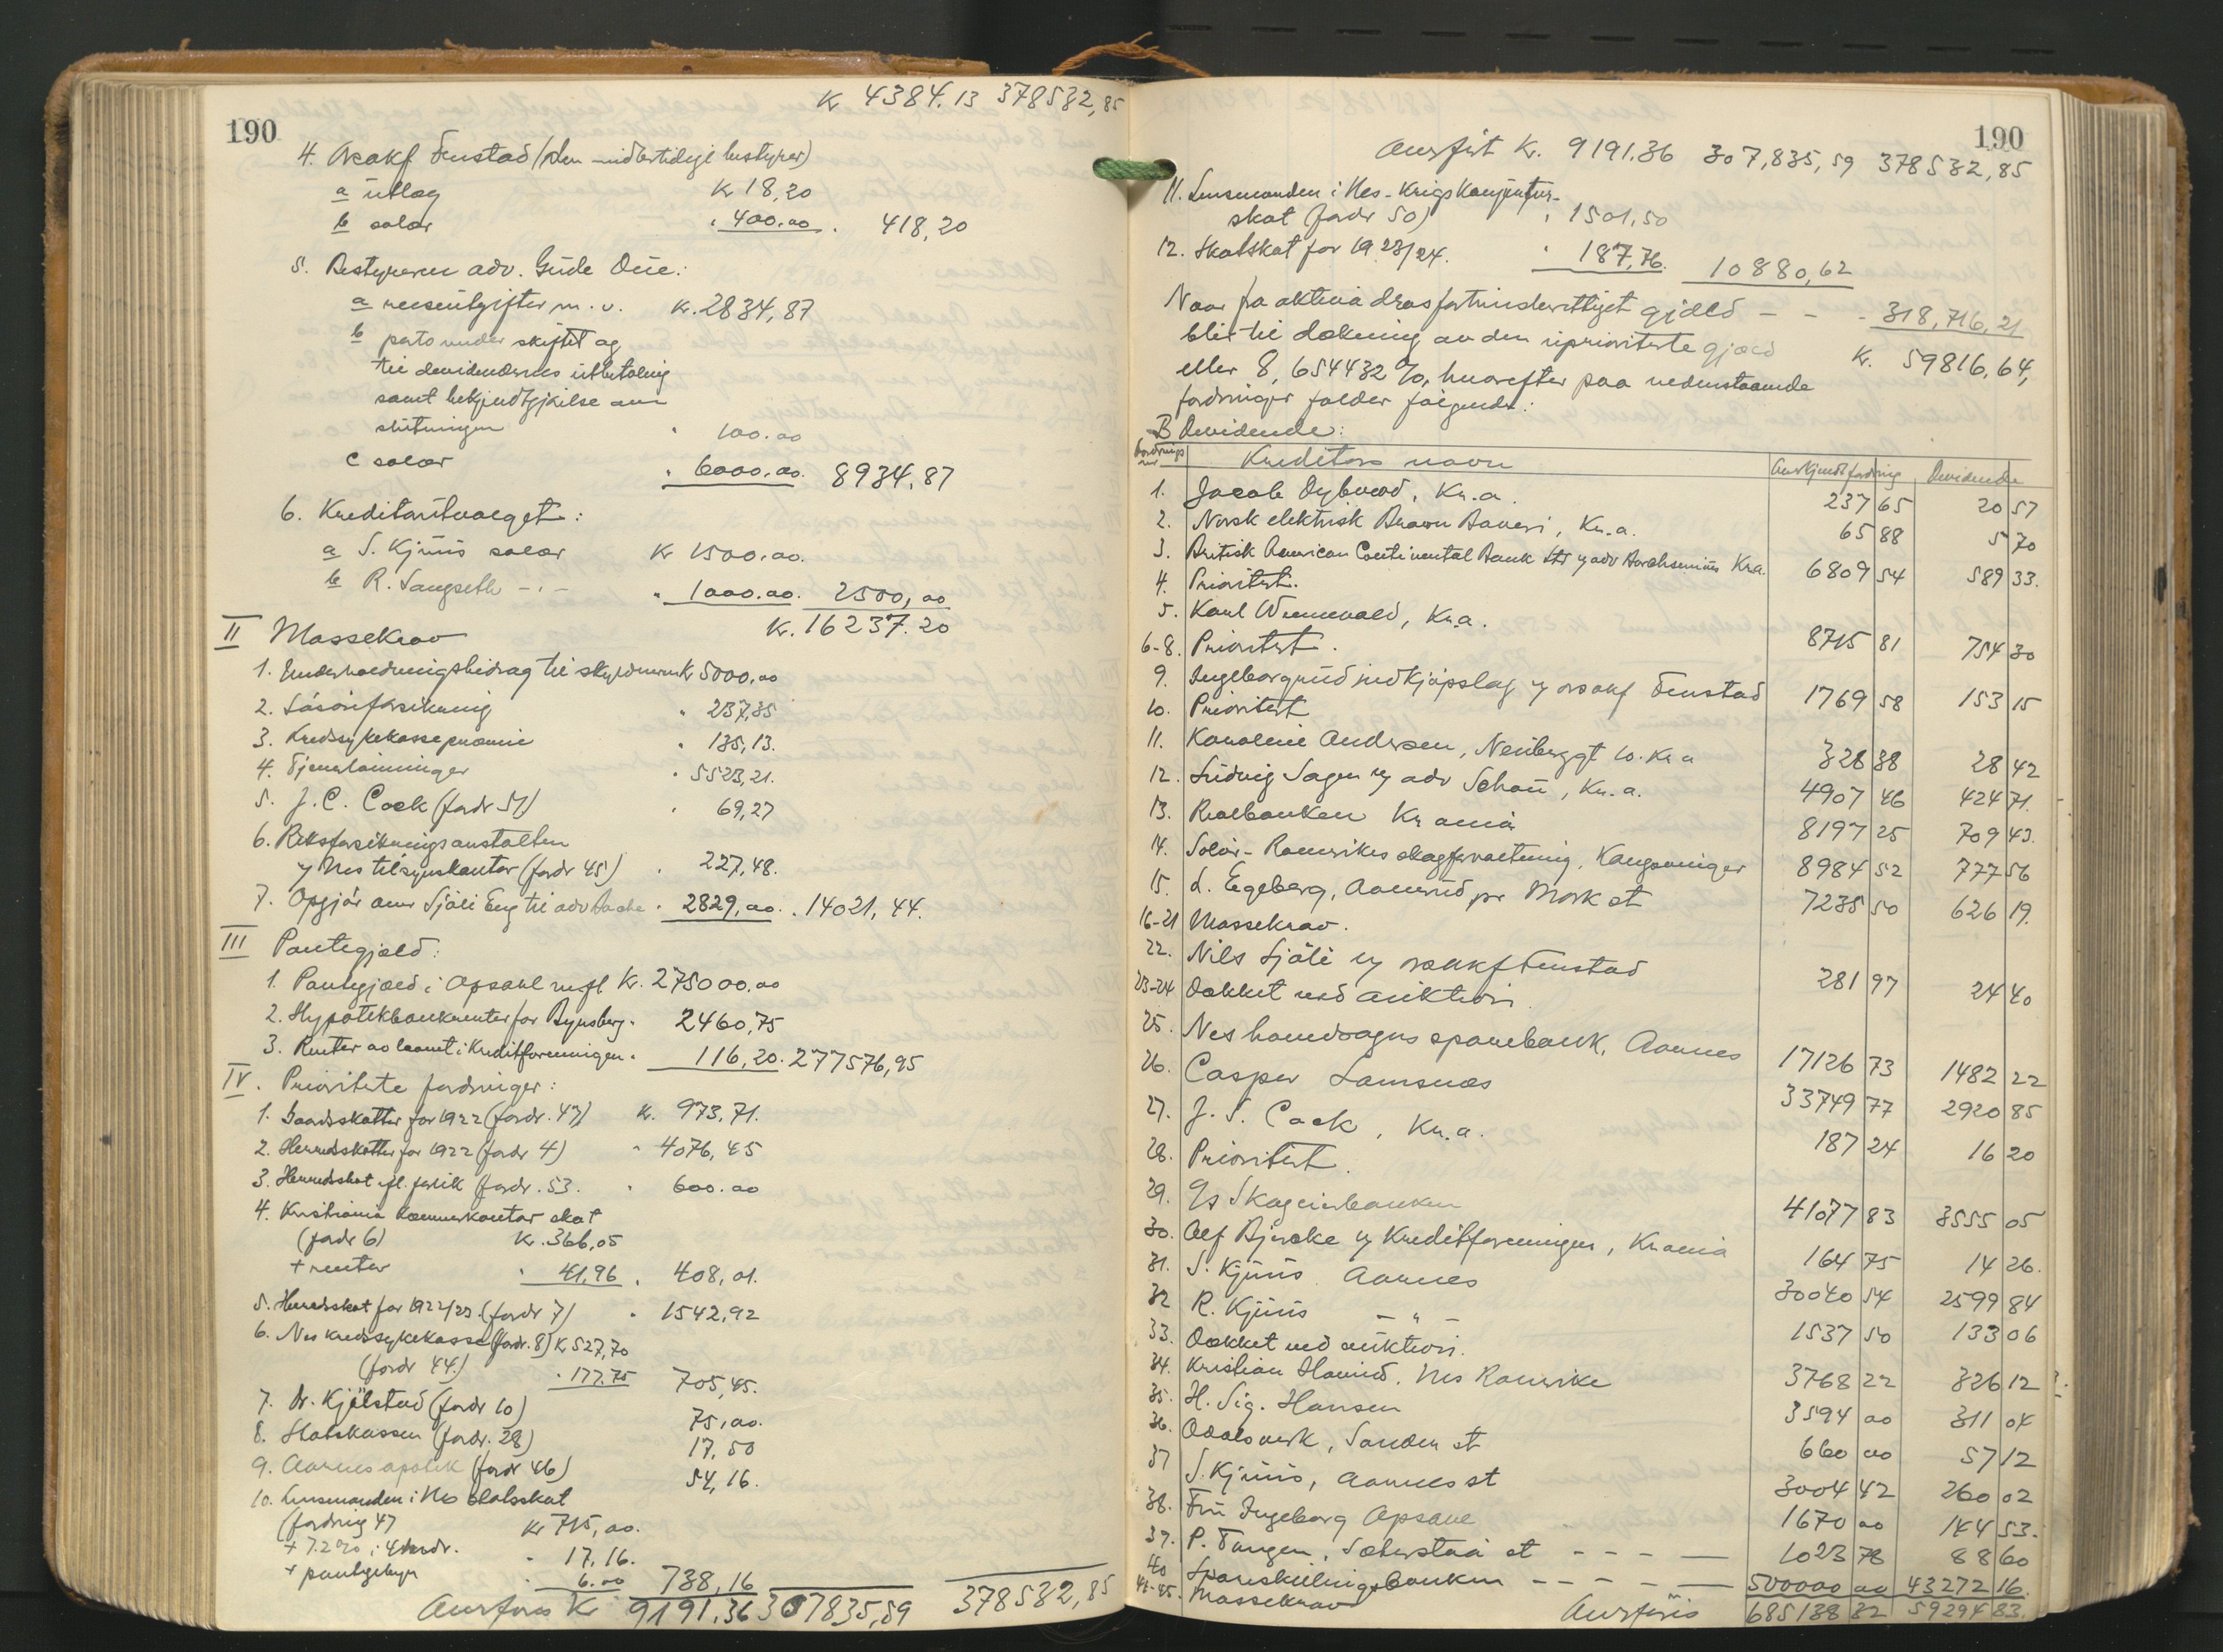 Kr 4384.13 378532,85
190
4. Orsakf Fenstad (den midlertidige bestyrer)
a utlæg Kr 18,20
b salær " 400.00 . 418,20
5. Bestyreren adv. Gude Due:
a reiseutgifter m. v. Kr. 2834,87
b porto under skiftet og
til devidendernes utbetaling
samt bekjendtgjørelse om
slutningen " 100.00
c salær " 6000.00. 8934,87
6. Kreditorutvalget:
a S. Kjuus salær Kr 1500.00.
b R. Langseth -"- " 1000.00. 2500,00
Kr. 16237.20
II Massekrav
1. Underholdningsbidrag til skyldneren Kr 5000,00
2. Løsøreforsikring " 237,35
3. Kredssykekassepræmie " 135,13.
4. Tjenerlønninger " 5523,21.
5. J. C. Cock (fordr 51) " 69,27
6. Riksforsikringsanstalten
v Nes tilsynskontor (fordr 45) . 227,48.
7. Opgjør over Sjøli Eng til adv Bache " 2829,00. . 14021,44.
III Pantegjæld:
1. Pantegjæld i Opsahl m fl Kr. 275000.00
2. Hypotekbankrenter for Bynsberg " 2460,75
3. Renter av laanet i Kreditforeningen " 116,20. 277576,95
IV. Prioriterte fordringer:
1. Gaardsskatter for 1922 (fordr. 43) Kr. 973,71.
2. Herredsskatter for 1922 (fordr 4) " 4076,45
3. Herredsskat (fordr. 53. " 600.00
4. Kristiania kæmnerkontor skat
(fordr 6) Kr. 366,05
+ renter " 41,96 . 408,01.
5. Herredsskat for 1922/23. (fordr 7) " 1542,92
6. Nes kredssykekasse (fordr. 8) Kr 527,70
(fordr 44.) " 177.75 705,45.
7. Dr. Kjølstad (fordr 10) 75,00.
8. Statskassen (fordr. 28) 17,50
9. Aarnes apotek (fordr 46) 54,16.
10. Lensmanden i Nes statsskat
(fordring 47 Kr 715,00.
+ 7.2% i 4 mndr. " 17.16.
+ pantegebyr " 6.00 738,16
Overføres Kr 9191.36 307835,59 378532,85
190
Overført Kr. 9191.36 307,835,59 378532,85
11. Lensmanden i Nes - Krigskonjunktur-
skat (fordr 50) " 1501,50
12. Statskat for 1923/24. " 187,76. 10880,62
Naar fra aktiva dras fortrinsberettiget gjæld - - - 318,716,21
blir til dækning av den uprioriterte gjæld Kr. 59816,64,
eller 8,654432 %, hvorefter paa nedenstaaende
fordringer falder følgende:
B Devidende:
Fordrings nr Kreditors navn Anerkjendt fordring Devidende
1. Jacob Dybwad, Kr.a. 237 65 20 57
2. Norsk elektrisk Brown Boveri, Kr.a. 65 88 5 70
3. British American Continental Bank Ltd v adv Kr.a. 6809 54 589 33.
4. Prioritert.
5. Karl Wennevald, Kr.a. 8715 81 754 30
6-8. Prioritert.
9. Ingeborgrud indkjøpslag v orsakf Fenstad 1769 58 153 15
10. Prioritert
11. Karoline Andersen, Neuberggt 10. Kr a 328 38 28 42
12. Ludvig Sagen v adv Schou, Kr.a. 4907 46 424 71.
13. Realbanken Kr ania 8197 25 709 43.
14. Solør-Romerikes skogforvaltning, Kongsvinger 8984 52 777 56
15. L. Egeberg, Aamrud pr Mork st 7235 50 626 19.
16-21 Massekrav.
22. Nils Sjøli v orsakf Fenstad 281 97 24 40
23-24 Dækket ved auktion.
25. Nes hovedsogns sparebank, Aarnes 17126 73 1482 22
26. Casper Lamsnæs 33749 77 2920 85
27. J. S. Cock, Kr.a. 187 24 16 20
28. Prioritert.
29. A/s Skogeierbanken 41077 83 3555 05
30. Alf Bjercke v Kreditforeningen, Kr ania 164 75 14 26.
31. S. Kjuus Aarnes 30040 54 2599 84
32 R. Kjuus - " - 1537 50 133 06
33. Dækket ved auktion.
34. Kristian Horned. Nes Romerike 3768 22 326 12
35. H. Sig. Hansen 3594 00 311 04
36. Odals verk, Sanden st 660 00 57 12
37 S. Kjuus, Aarnes st 3004 42 260 02
38. Fru Ingeborg Opsahl 1670 00 144 53.
39. P. Tangen, Sæterstøa st - - - - 1023 78 88 60
40 Spareskillingsbanken - - - - - 500000 00 43272 16.
41-45. Massekrav
Overføres 685138 32 59294 83.